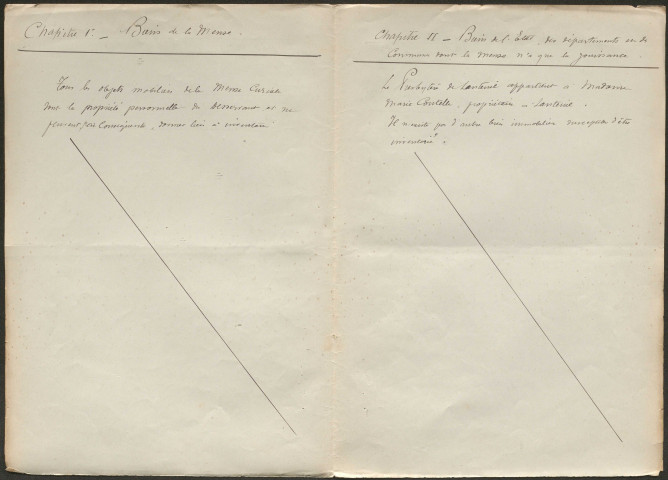 Chapitre Ier - Biens de la Mense.
Tous les objets mobiliers de la Mense Curiale
sont la propriété personnelle du Desservant et ne
peuvent, par conséquent, donner lieu à inventaire
Chapitre II - Biens de l'Etat, des départements et de
Communes dont la mense n'a que la jouissance.
Le Presbytère de appartient à Madame
Marie propriétaire à
Il n'existe pas d'autre bien immobilier susceptible d'être
inventorié.